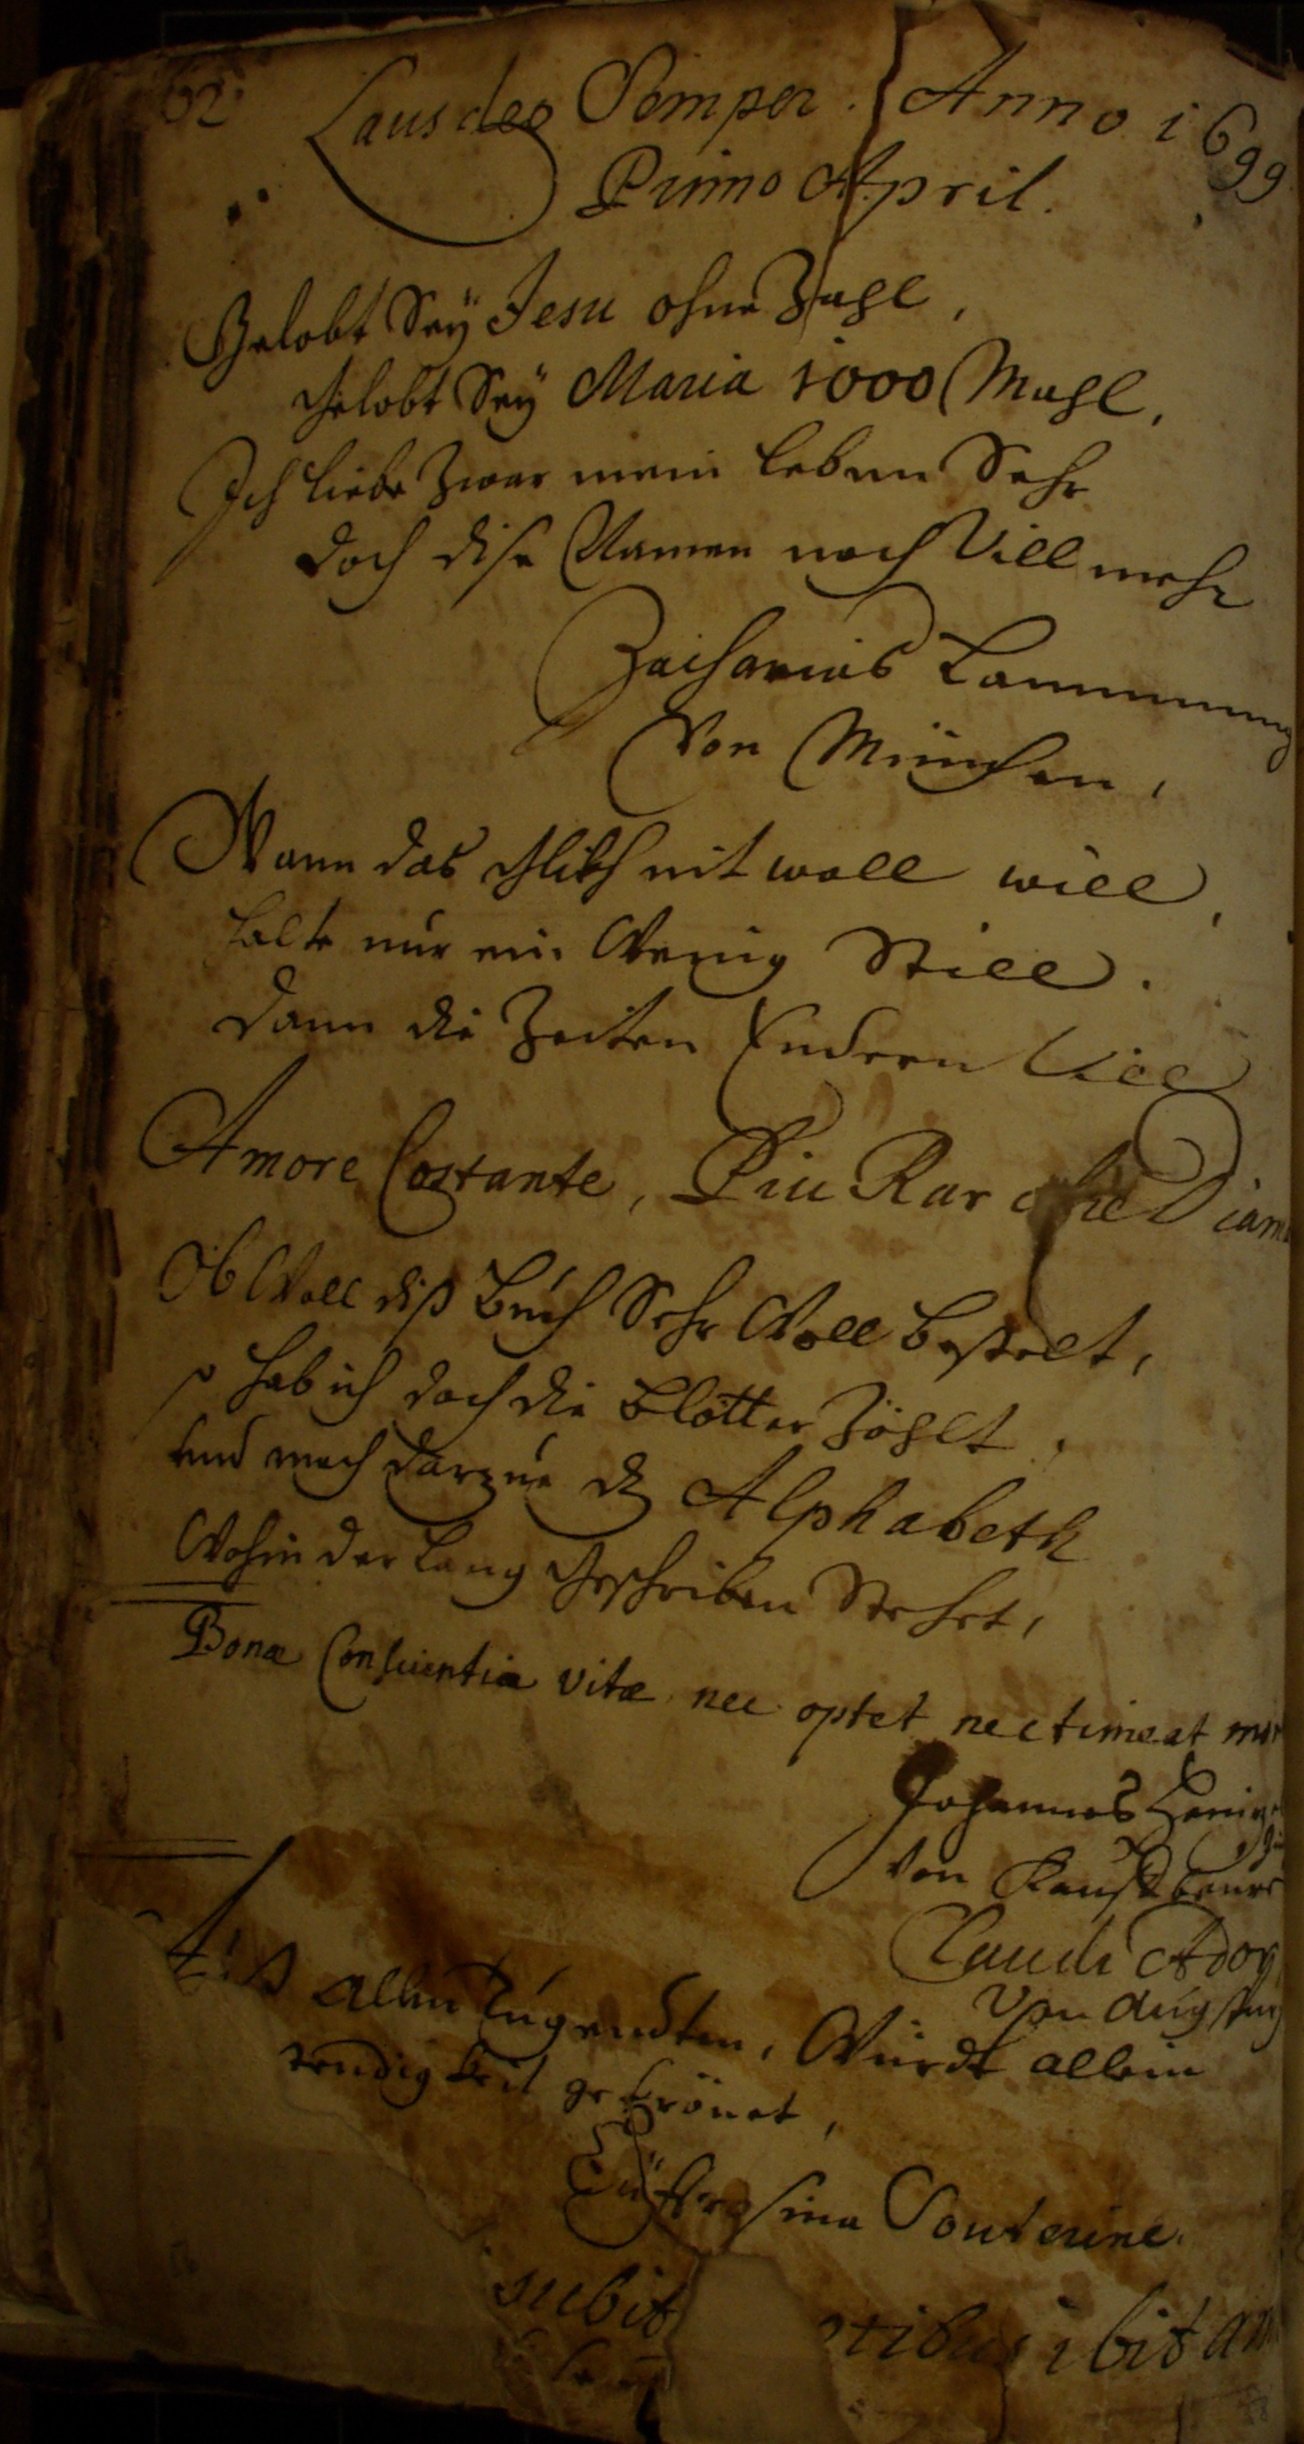 62.
Laus deo Semper. Anno 1699
Primo April.
Gelobt Seÿ Jesu ohne Zahl,
Gelobt Seÿ Maria 1000 Mahl,
Ich liebe Zwar mein leben Sehr
doch dise Namen noch Vill mehr
Zacharias
Von München,
Wann das Glikh nit woll will,
halte nur ein Wenig Still.
dann die Zeiten Endern Vill
Amore Costante, Piu Rar che Diam
Ob Woll diß buch Sehr Woll bestelt,
so hab ich doch die blötter Zöhlt,
und mach darzue dz Alphabeth
Wohin der lang Geschriben Stehet,
Bonæ Conscientiæ vitæ nec optet nec timeat mor
Johannes
Von Kauffbeure
Claudi
Von Augspurg
allen Tugendten, Würdt allein
tendigkeit gekrönet,
Eüffrosina Souterine.
subit tibus ibit am